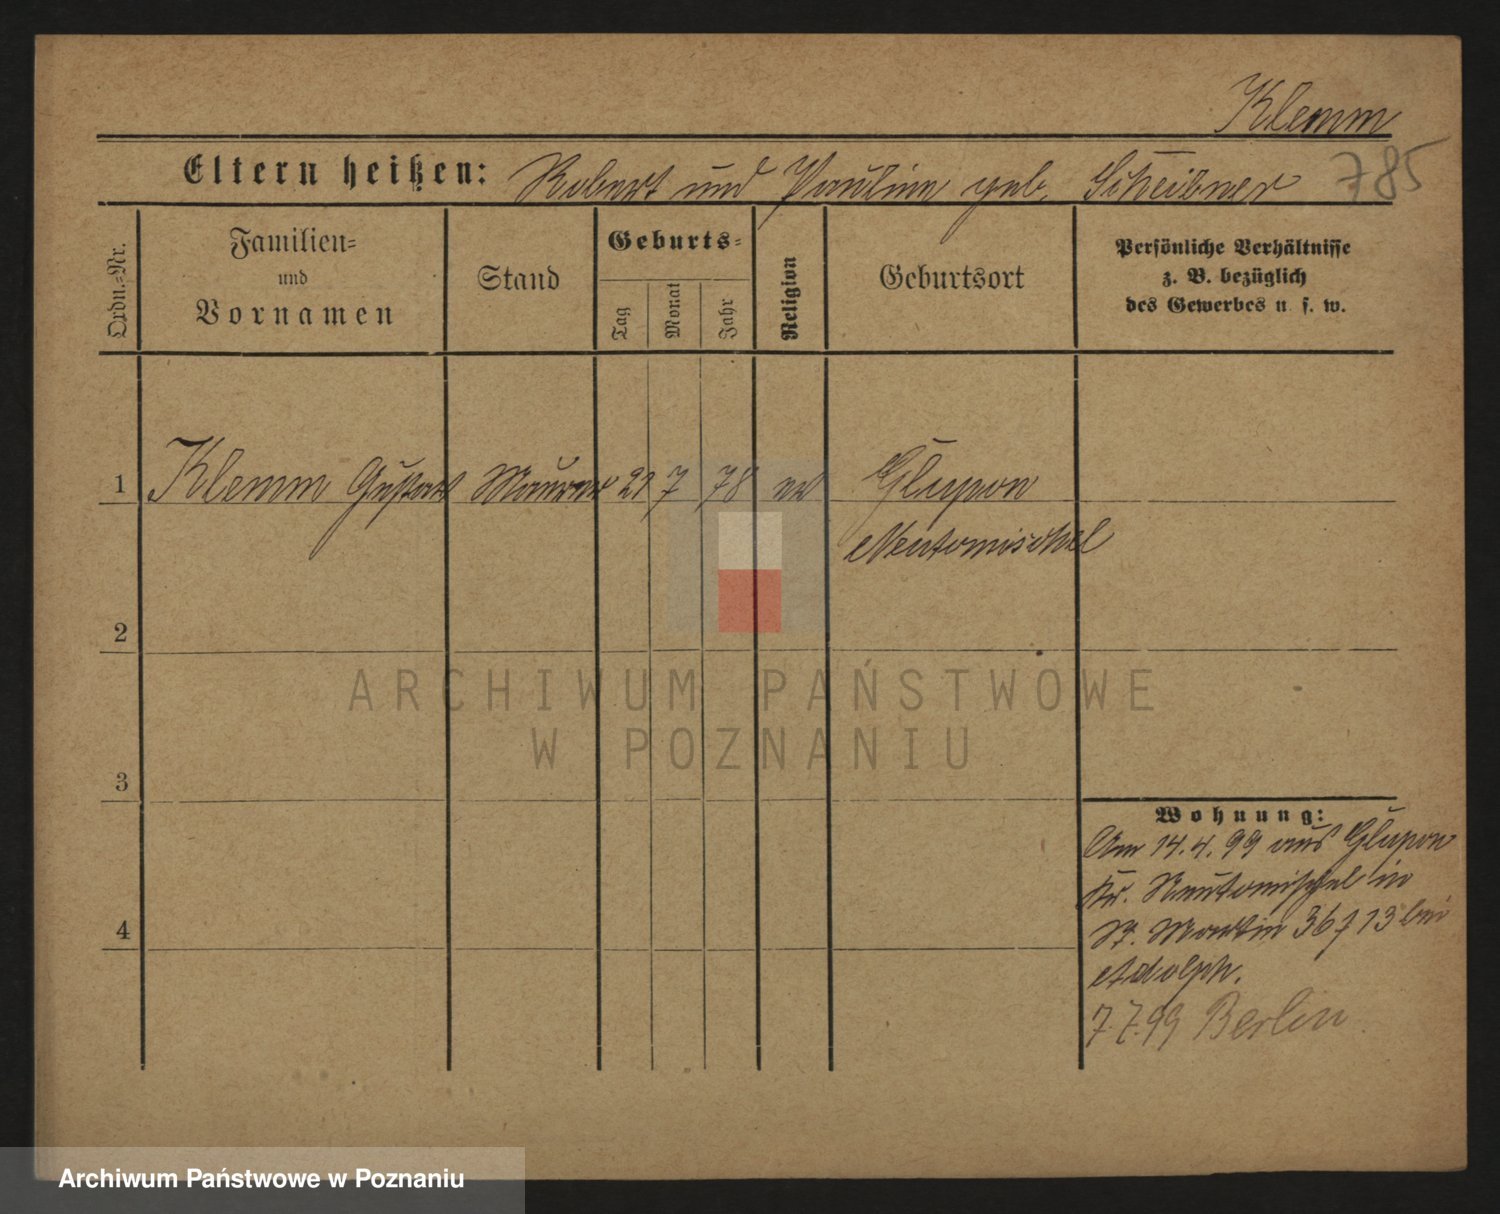 Klemm
785
Eltern heißen: Robert und Pauline geb. Scheibner
Ordn.-Nr.
Familien-
und
Vornamen
Stand
Geburts-
Tag
Monat
Jahr
Religion
Geburtsort
Persönliche Verhältnisse
z. B. bezüglich
des Gewerbes u. s. w.
1 Klemm Gustav Maurer 21 7 78 ev Glupon
Neutomischel
2
ARCHIWUM PAŃSTWOWE
W POZNANIU
3
Wohnung:
Am 14.4.99 aus Glupon
Kr. Neutomischel in
St. Martin 36 f 13 bei
Adolph.
4
7.7.99 Berlin
Archiwum Państwowe w Poznaniu